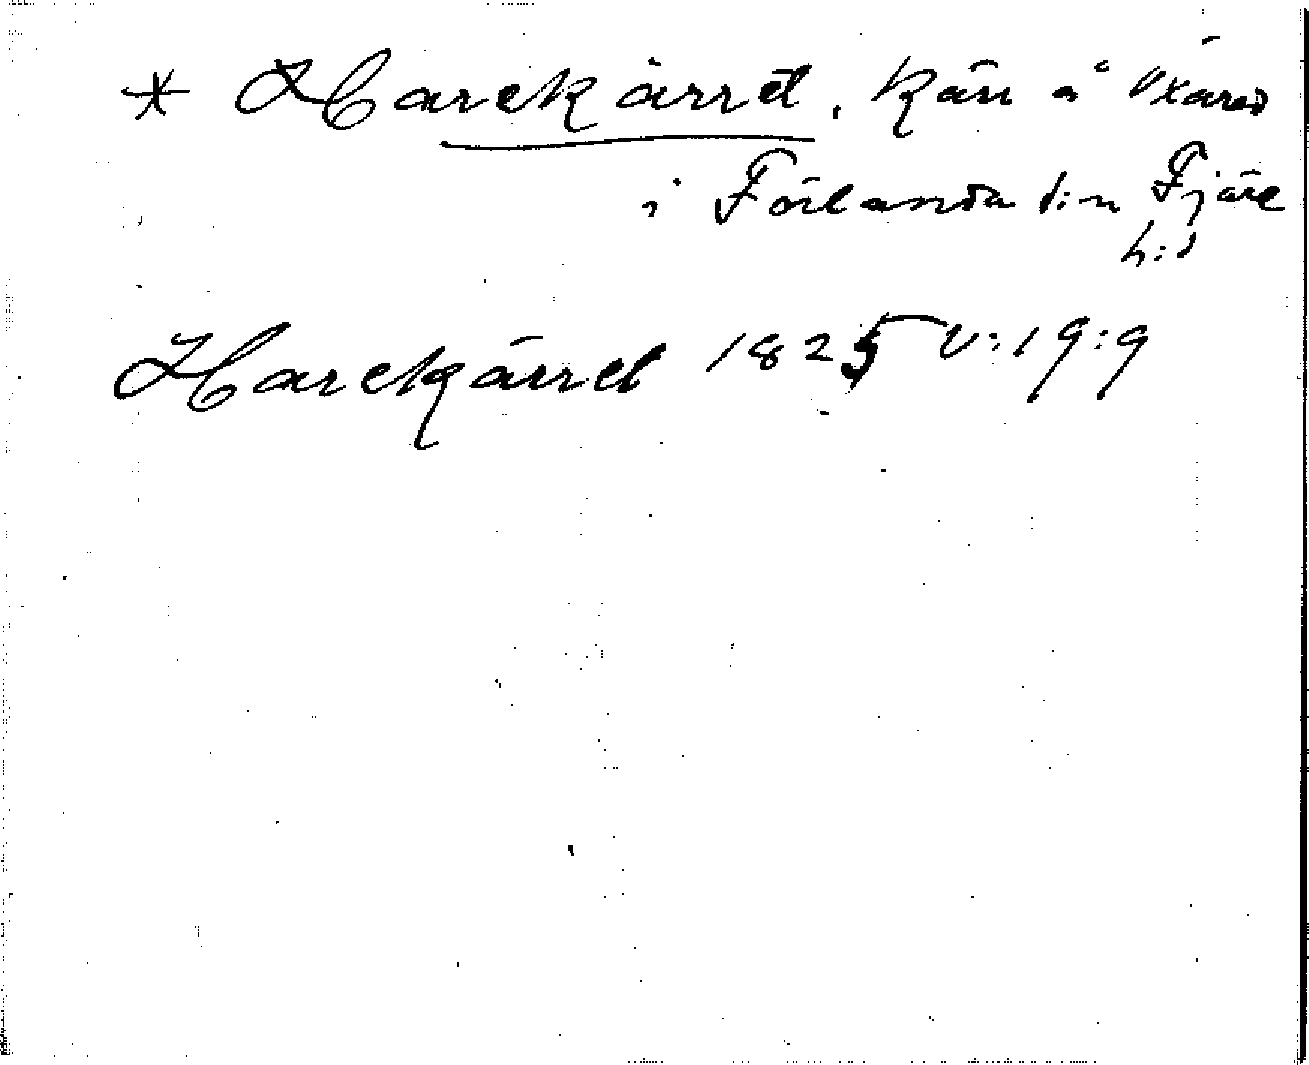 * Harekärret, kärr å Uxared
i Förlanda s:n Fjäre
h:d
Harekärret 1825 U:19:9